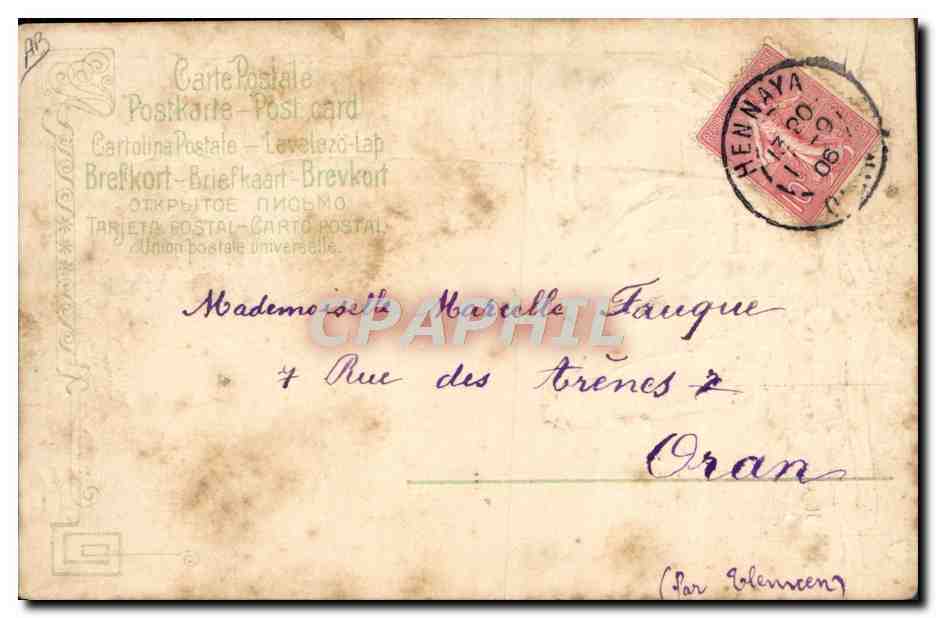 AB
Carte Postale
Postkarte - Post card
Cartolina Postale - Levelező-Lap
Brefkort - Briefkaart - Brevkort
ОТКРЫТОЕ ПИСЬМО
TARJETA POSTAL - CARTO POSTAL
Union postale universelle.
HENNAYA
20
06
10
Mademoiselle Marcelle Fauque
CPAPHIL
7 Rue des Arènes 7
Oran
(Par Tlemcen)